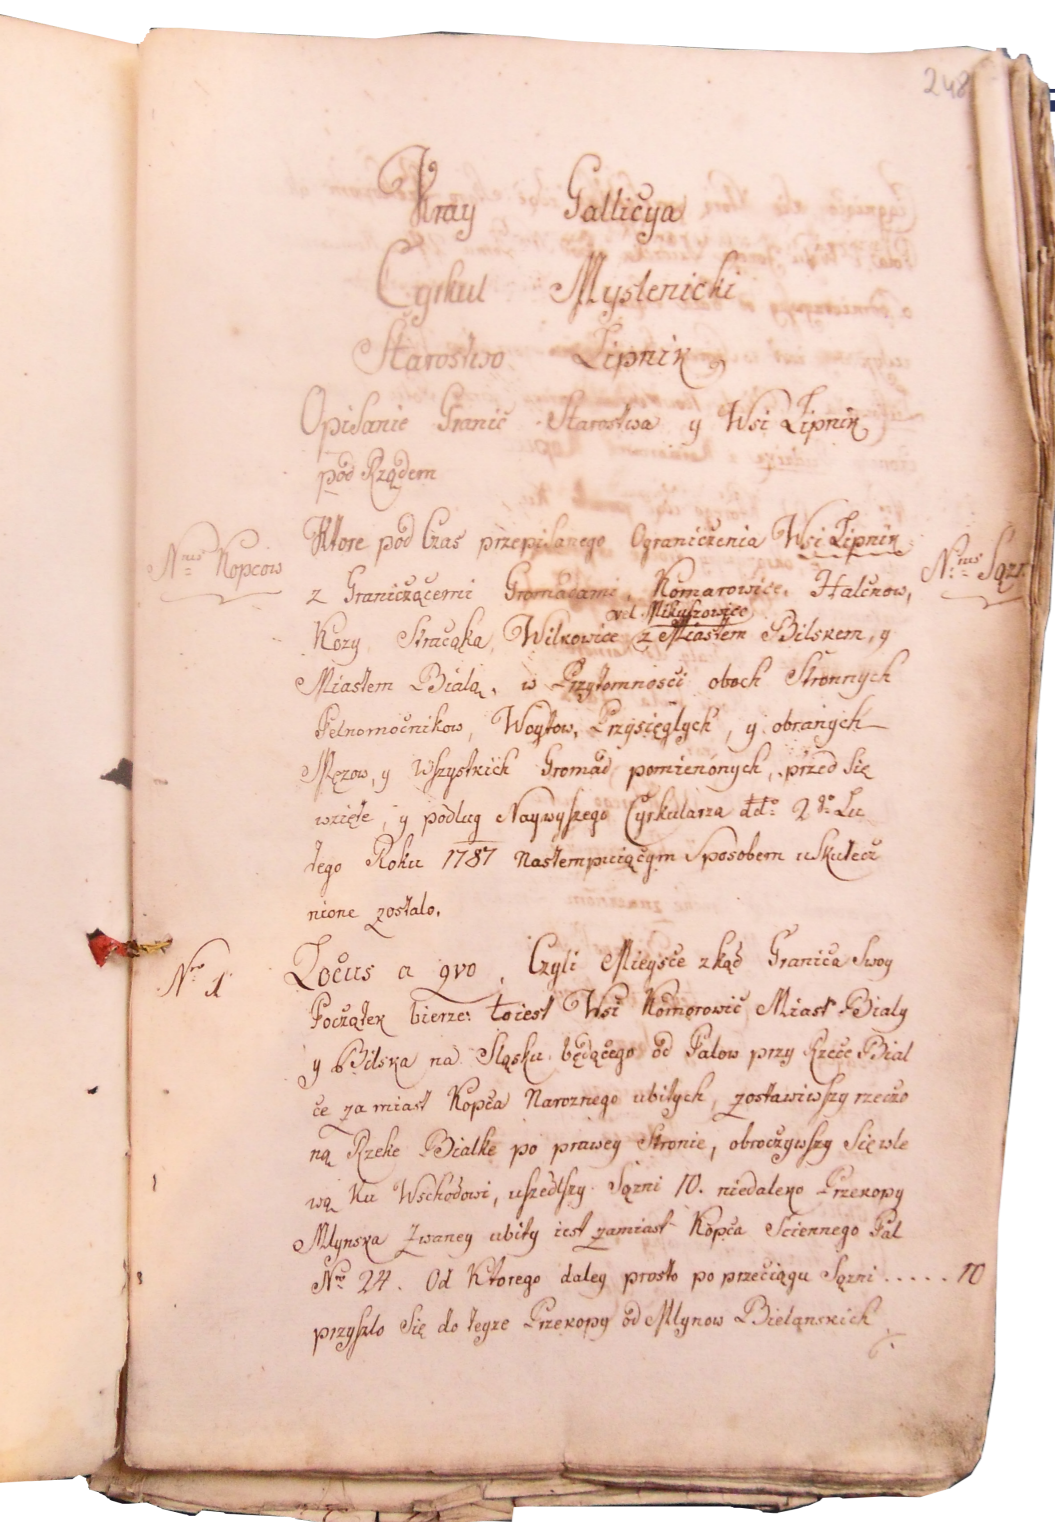 248
Kray Gallicya
Cyrkul Myslenicki
Starostwo Lipnik
Opisanie Granic Starostwa y Wsi Lipnik
pod Rządem
Ktore pod Czas przepisanego Ograniczenia Wsi Lipnik
Nrus Kopcow
Nrus Sązn
z Graniczącemi Gromadami, Komarowice, Halcnow,
vel Mikuszowice
Kozy Stracąka, Wilkowice z Miastem Bilskem, y
Miastem Bialą, w Przytomnosci oboch Stronnych
Pelnomocnikow, Woytow, Przysięglych, y obranych
Męzow, y Wszystkich Gromad pomienonych, przed się
wzięte, y podlug Naywyszego Cyrkularza ddto 2do Lu
tego Roku 1787 Nastempuiącym Sposobem uskutecz
nione zostalo.
Nro 1 Locus a qvo, Czyli Mieysce zkąd Granica Swoy
Początek bierze: to iest Wsi Komorowic Miast Bialy
y Bilska na Sląsku będącego od Palow przy Rzece Bial
ce zamiast Kopca Naroznego ubitych, zostawiwszy rzeczo
ną Rzeke Bialke po prawey Stronie, obroczywszy Się w le
wą Ku Wschodowi, uszedłszy Sązni 10. niedaleko Przekopy
Mlynska Zwaney ubity iest zamiast Kopca Sciennego Pal
Nro 24. Od Ktorego daley prosto po przeciągu Sązni ..... 10
przyszlo Się do teyze Przekopy od Mlynow Bielanskich